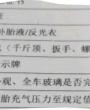 补胎液/反光衣
(千斤顶、扳手、螺
示牌
观、全车玻璃是否完
胎充气压力至规定